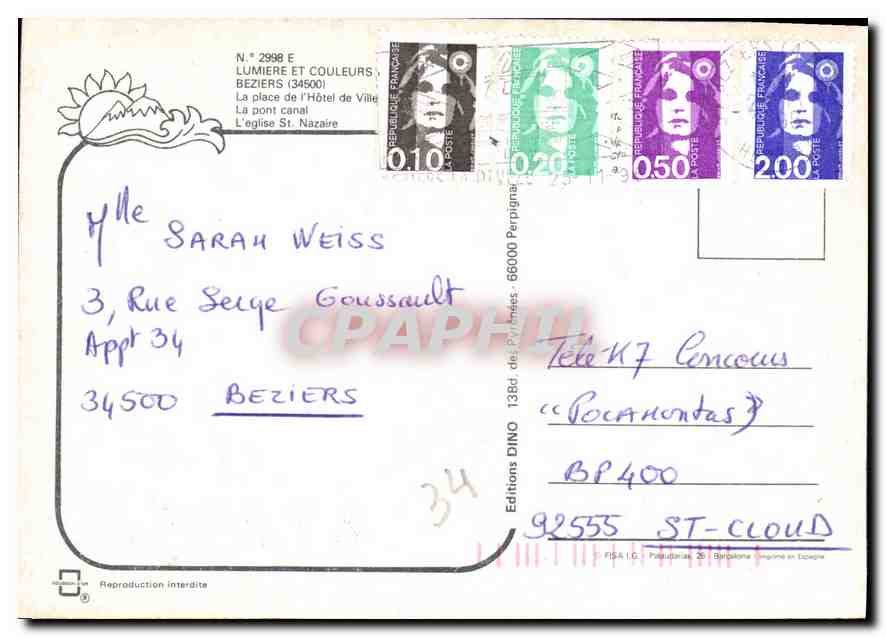 N.° 2998 E
LUMIERE ET COULEURS
BEZIERS (34500)
La place de l'Hôtel de Ville
La pont canal
L'eglise St. Nazaire
REPUBLIQUE FRANÇAISE
0,10
LA POSTE
REPUBLIQUE FRANÇAISE
0,20
LA POSTE
REPUBLIQUE FRANÇAISE
0,50
LA POSTE
REPUBLIQUE FRANÇAISE
2,00
LA POSTE
Mlle SARAH WEISS
3, Rue Serge Goussault
Appt 34
34500 BEZIERS
34
Editions DINO 13Bd. des Pyrénées - 66000 Perpignan
CPAPHIL
Télé K7 Concours
"POCAHONTAS"
BP 400
92555 ST-CLOUD
© FISA I.G. - Palaudarias, 26 - Barcelona - Imprimé en Espagne
Reproduction interdite